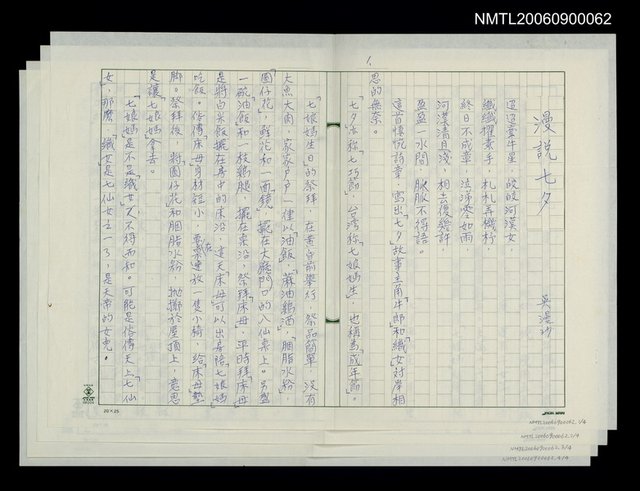 NMTL20060900062
1.
漫說七夕
吳漫沙
迢迢牽牛星，皎皎河漢女，
纖纖擢素手，札札弄機杼，
終日不成章，泣涕零如雨，
河漢清且淺，相去復幾許，
盈盈一水間，脈脈不得語。
這首情悅詩章，寫出「七夕」故事主角「牛郎」和「織女」對岸相
思的無奈。
「七夕」亦稱「七巧節」，台灣稱「七娘媽生」，也稱為「成年節」。
「七娘媽生日」的祭拜，在黃昏前舉行，祭品簡單，沒有
大魚大肉，家家戶戶一律以「油飯」、「蔴油鷄酒」，胭脂水粉，
「圓仔花」，鮮花和一面鏡，擺在大廳門口的八仙桌上。另盛
一碗「油飯」和一枝鷄腿，擺在床沿，祭拜「床母」，平時拜「床母」
是將白米飯擺在房中的床沿，這天「床母」可以出去陪「七娘媽」
吃飯。俗傳床母身材短小，要在桌邊放一隻小椅，給「床母」墊
腳。祭拜後，將「圓仔花」和胭脂水粉，拋擲於屋頂上，意思
是讓「七娘媽」拿去。
「七娘媽」是不是「織女」？不得而知。可能是俗傳天上「七仙
女」，那麼，「織女」是七仙女之一了，是天帝的女兒。
20×25
NMTL20060900062.1/4
NMTL20060900062.2/4
NMTL20060900062.3/4
NMTL20060900062.4/4